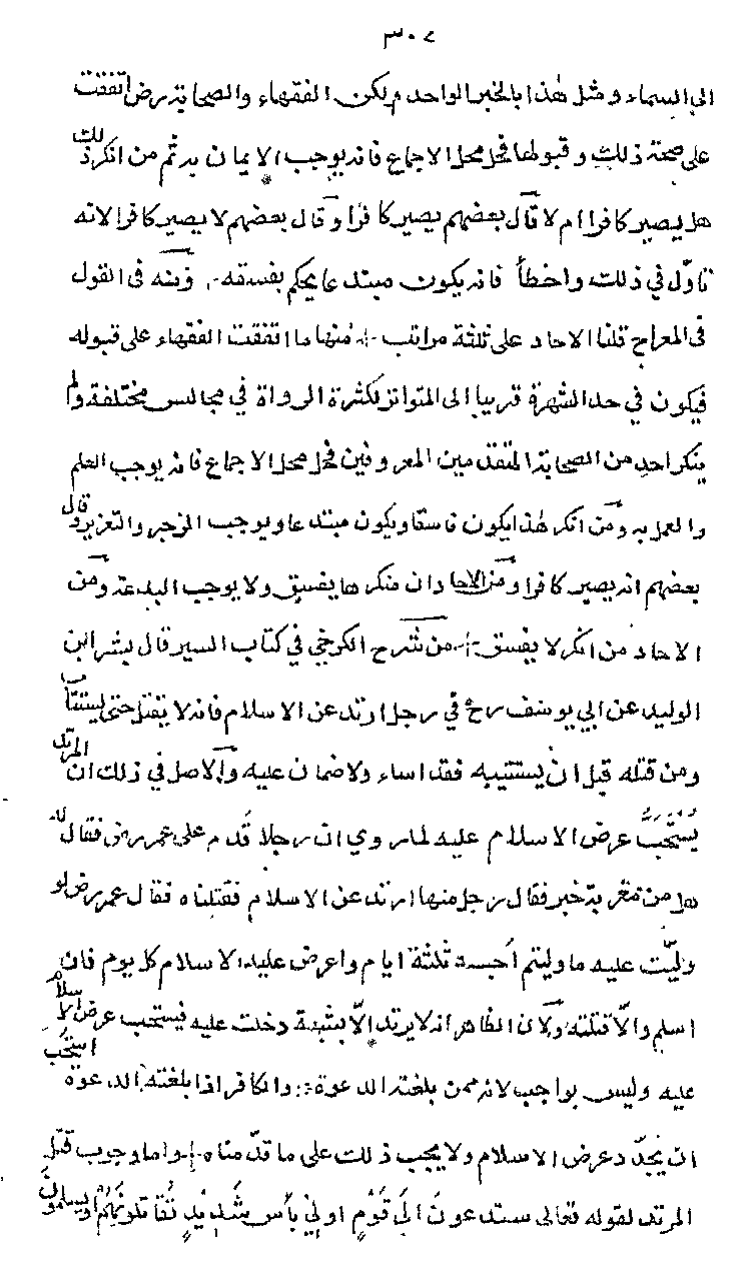 ٣٠٧
الى السماء ومثل هٰذا بالخبر الواحد ولكن الفقهاء والصحابة رض اتفقت
على صحة ذلك وقبولها فحل محل الاجماع فانه يوجب الايمان به ثم من انكر ذلك
هل يصير كافرا ام لا قال بعضهم يصير كافرا وقال بعضهم لا يصير كافرا لانه
تاوّل في ذلك واخطأ فانه يكون مبتدعا يحكم بفسقه ومنه فى القول
فى المعراج قلنا الاحاد على ثلثة مراتب منها ما اتفقت الفقهاء على قبوله
فيكون في حد الشهرة قريبا الى المتواتر لكثرة الرواة في مجالس مختلفة ولم
ينكر احد من الصحابة المتقدمين المعروفين فحل محل الاجماع فانه يوجب العلم
والعمل به ومن انكر هٰذا يكون فاسقا ويكون مبتدعا ويوجب الزجر والتعزير وقال
بعضهم انه يصير كافرا ومن الاحاد ان منكرها يفسق ولا يوجب البدعة ومن
الاحاد من انكر لا يفسق من شرح الكرخي في كتاب السير قال بشر ابن
الوليد عن ابي يوسف رح في رجل ارتد عن الاسلام فانه لا يقتل حتى يستتاب
ومن قتله قبل ان يستتيبه فقد اساء ولا ضمان عليه والاصل في ذلك ان المرتد
يستحبّ عرض الاسلام عليه لما روي ان رجلا قدم على عمر رض فقال له
هل من مغربة خبر فقال رجل منها ارتد عن الاسلام فقتلناه فقال عمر رض لو
وليّت عليه ما وليتم احبسه ثلثة ايام واعرض عليه الاسلام كل يوم فان
اسلم والّا قتلته ولان الظاهر انه لا يرتد الّا بشبهة دخلت عليه فيستحب عرض الاسلام
عليه وليس بواجب لانه ممن بلغته الدعوة والكافر اذا بلغته الدعوة استحب
ان يجدّد عرض الاسلام ولا يجب ذلك على ما قدّمناه واما وجوب قتل
المرتد لقوله تعالى ستدعون الى قَوْمٍ اولي بأس شَدِيْدٍ تُقَاتلونَهُمْ او يسلمون